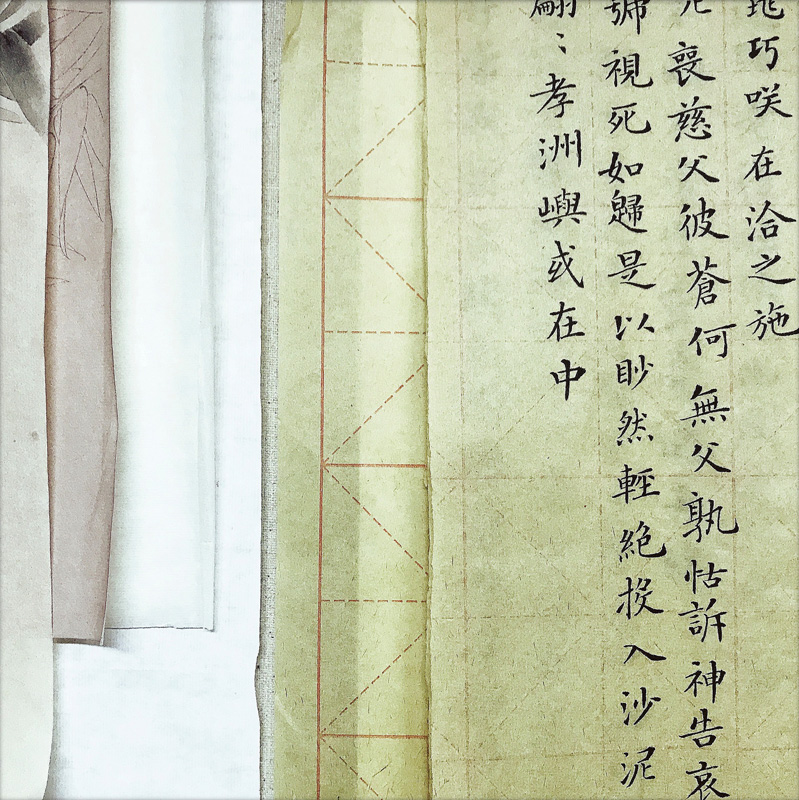 巧咲在洽之施
喪慈父彼蒼何無父孰怙訴神告哀
號視死如歸是以眇然輕絕投入沙泥
翩〻孝洲嶼或在中